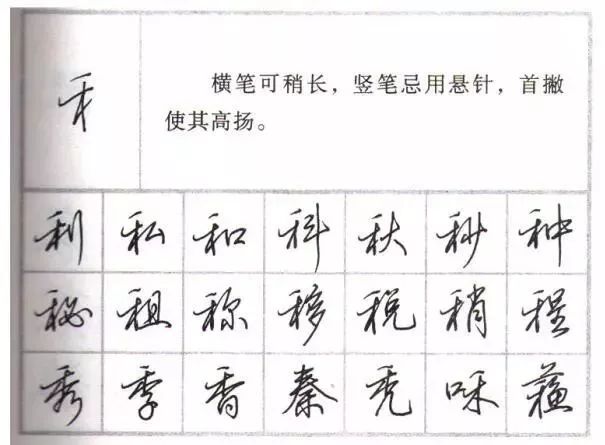 禾
横笔可稍长，竖笔忌用悬针，首撇
使其高扬。
利 私 和 科 秋 秒 种
秘 租 称 移 税 稍 程
秀 季 香 秦 秃